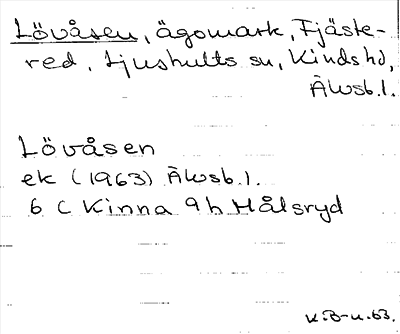 Lövåsen, ägomark, Fjäske-
red, Ljushults sn, Kinds hd,
Älvsb.l.
Lövåsen
ek (1963) Älvsb.l.
6 C Kinna 9h Hålsryd
K.B-n.63.